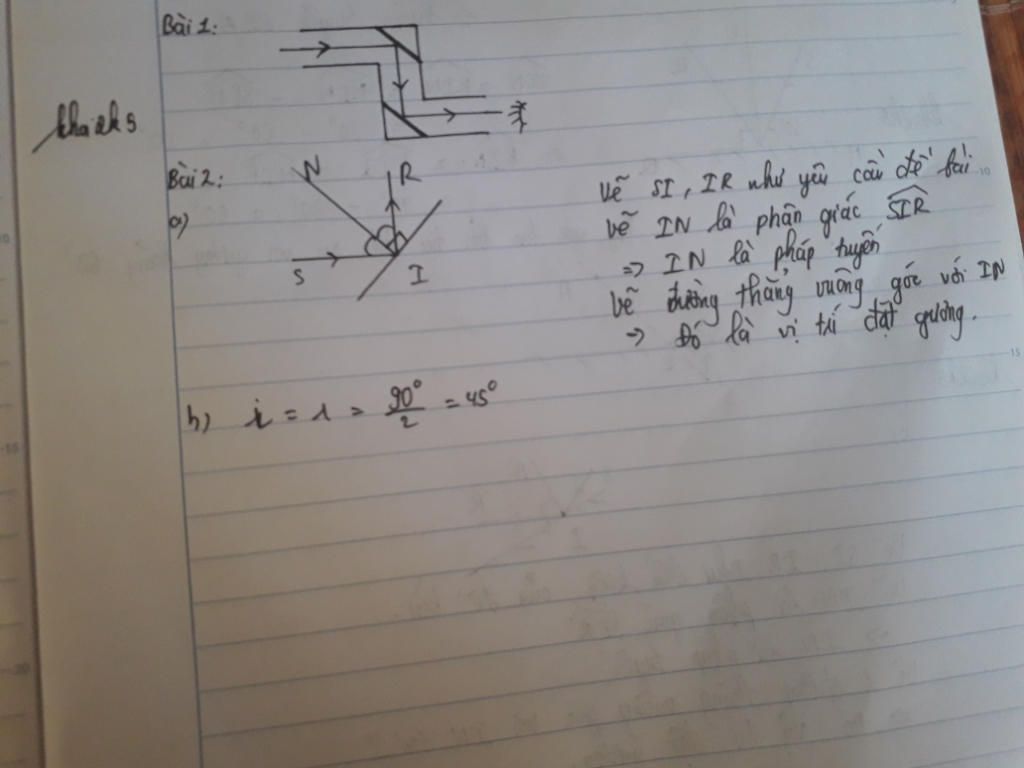 Bài 1:
Bài 2:
a)
N
R
S
I
Vẽ SI, IR như yêu cầu đề bài
Vẽ IN là phân giác SIR
=> IN là pháp tuyến
Vẽ đường thẳng vuông góc với IN
=> Đó là vị trí đặt gương.
b) i = i = 90°/2 = 45°